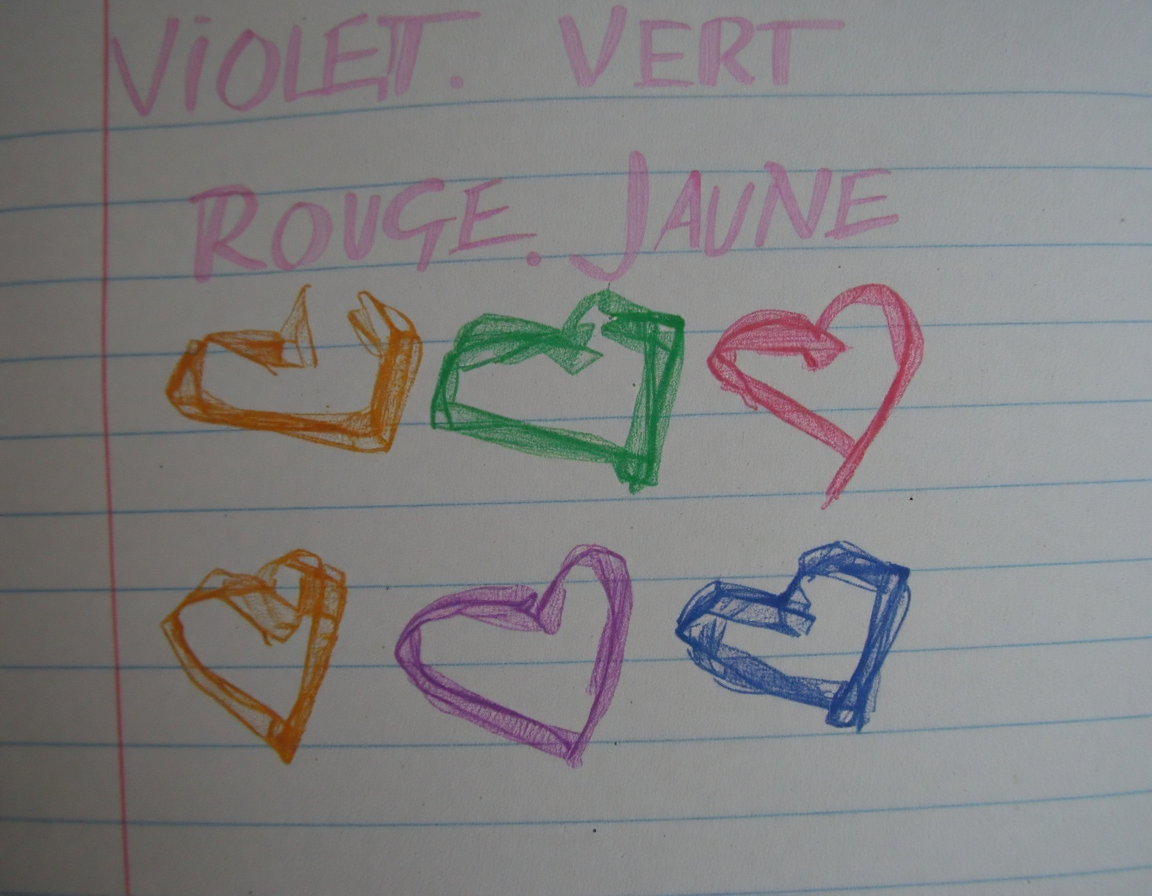 VIOLETT. VERT
ROUGE. JAUNE